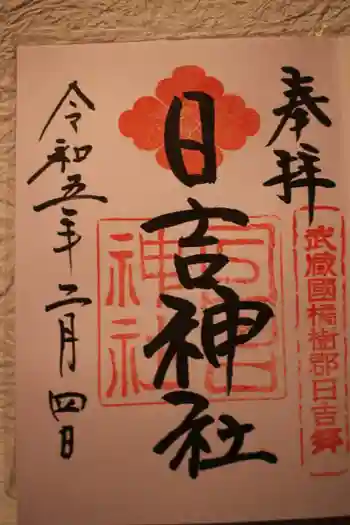 奉拝
武蔵國橘樹郡日吉鎮
日吉神社
日吉神社
令和五年二月四日